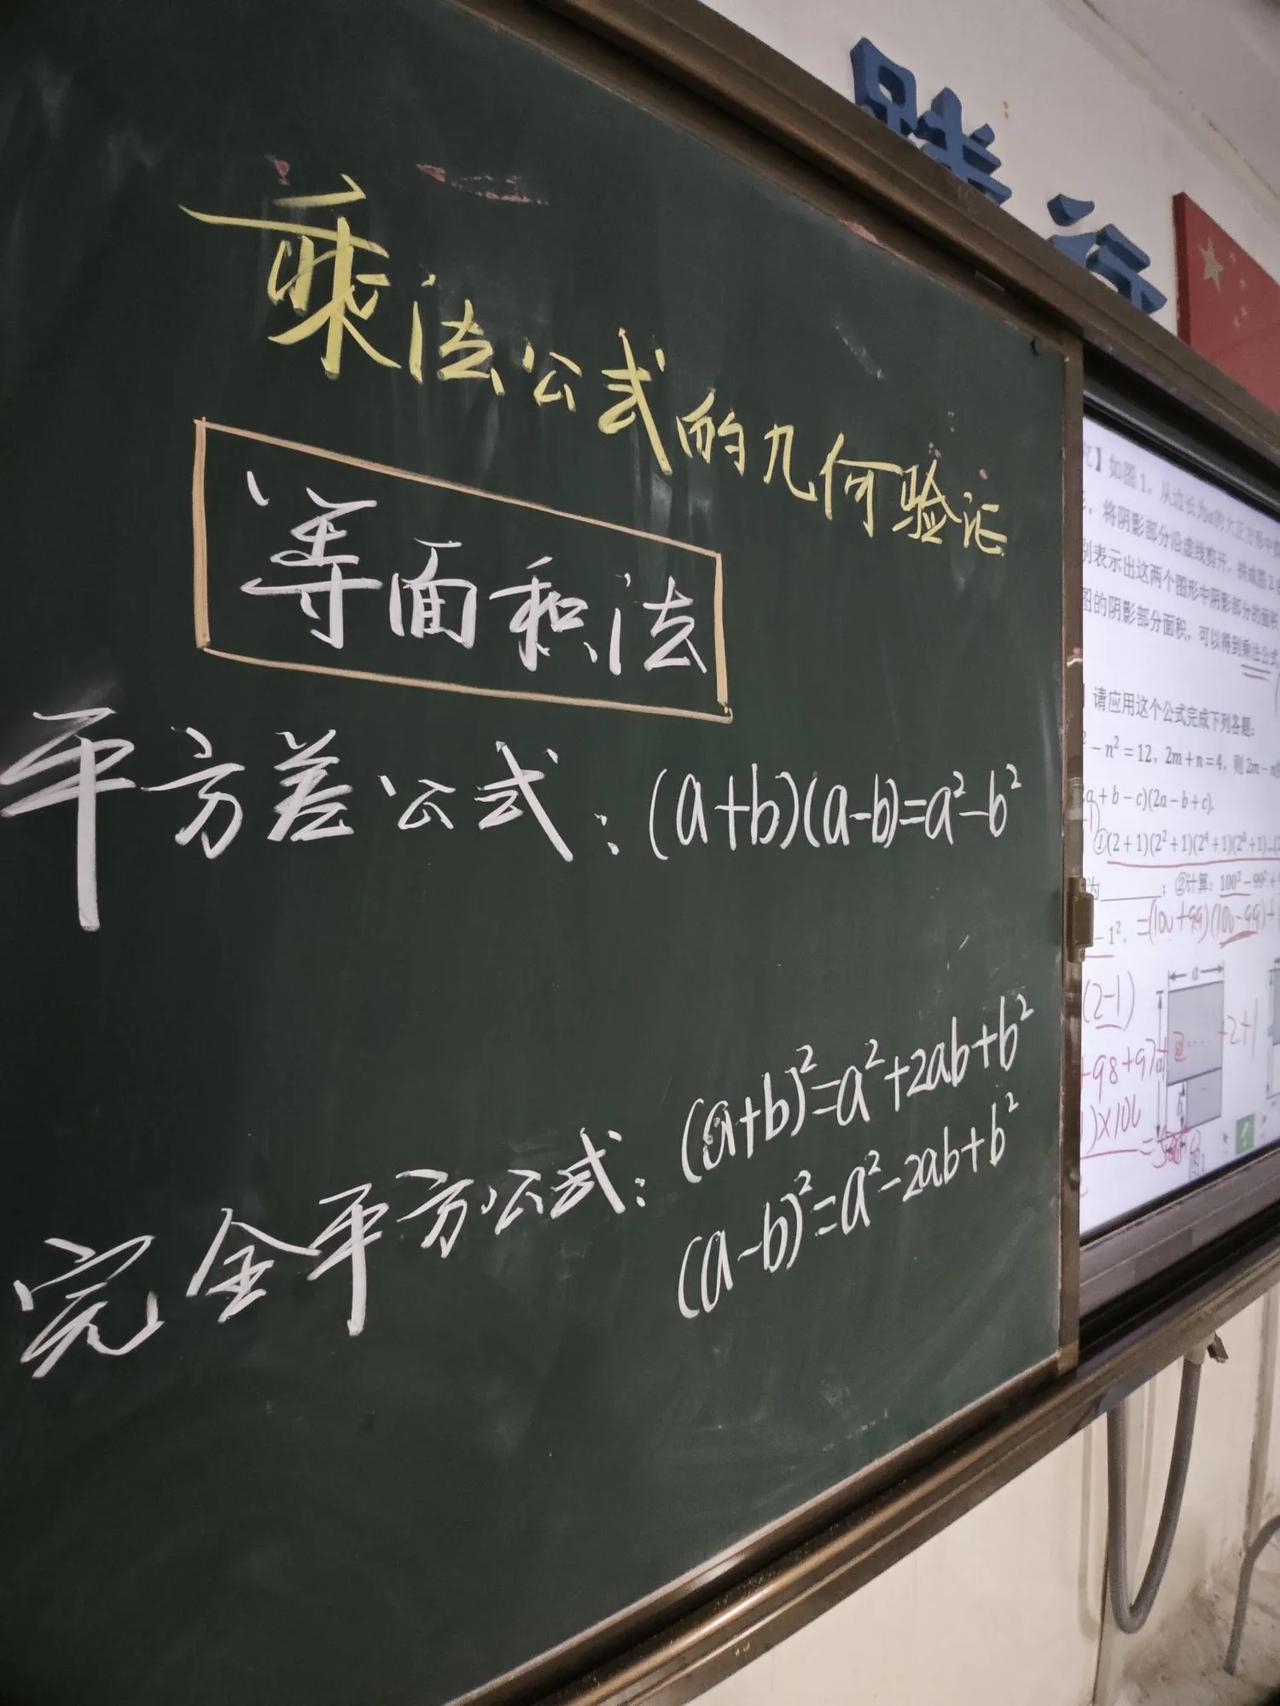 践行
乘法公式的几何验证
等面积法
平方差公式：(a+b)(a-b)=a²-b²
完全平方公式：(a+b)²=a²+2ab+b²
(a-b)²=a²-2ab+b²
】如图1，从边长为a的大正方形中
，将阴影部分沿虚线剪开，拼成图2
别表示出这两个图形中阴影部分的面积
图的阴影部分面积，可以得到乘法公式
】请应用这个公式完成下列各题：
² - n² = 12，2m + n = 4，则 2m - n
a + b - c)(2a - b + c).
①(2+1)(2²+1)(2⁴+1)(2⁸+1)
为______；②计算：100² - 99² +
- 1².
=(100+99)(100-99)+
(2-1)
a
+98+97+
+2+1
)×100